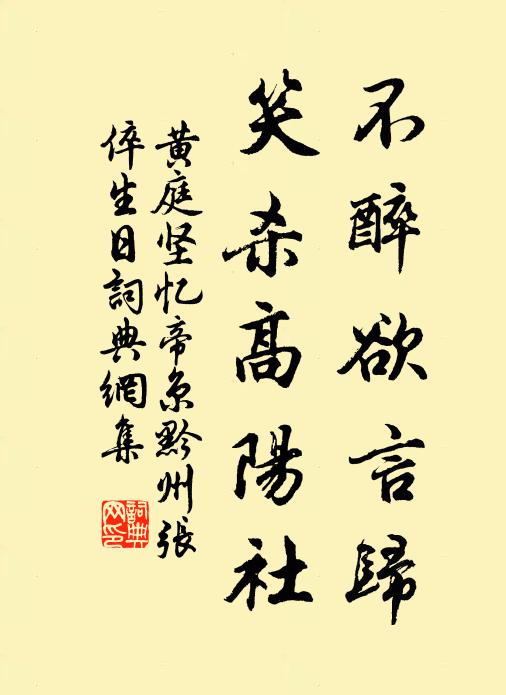 不醉欲言歸
笑杀高陽社
黄庭坚忆帝京黔州張
倅生日詞典網集
詞典网印